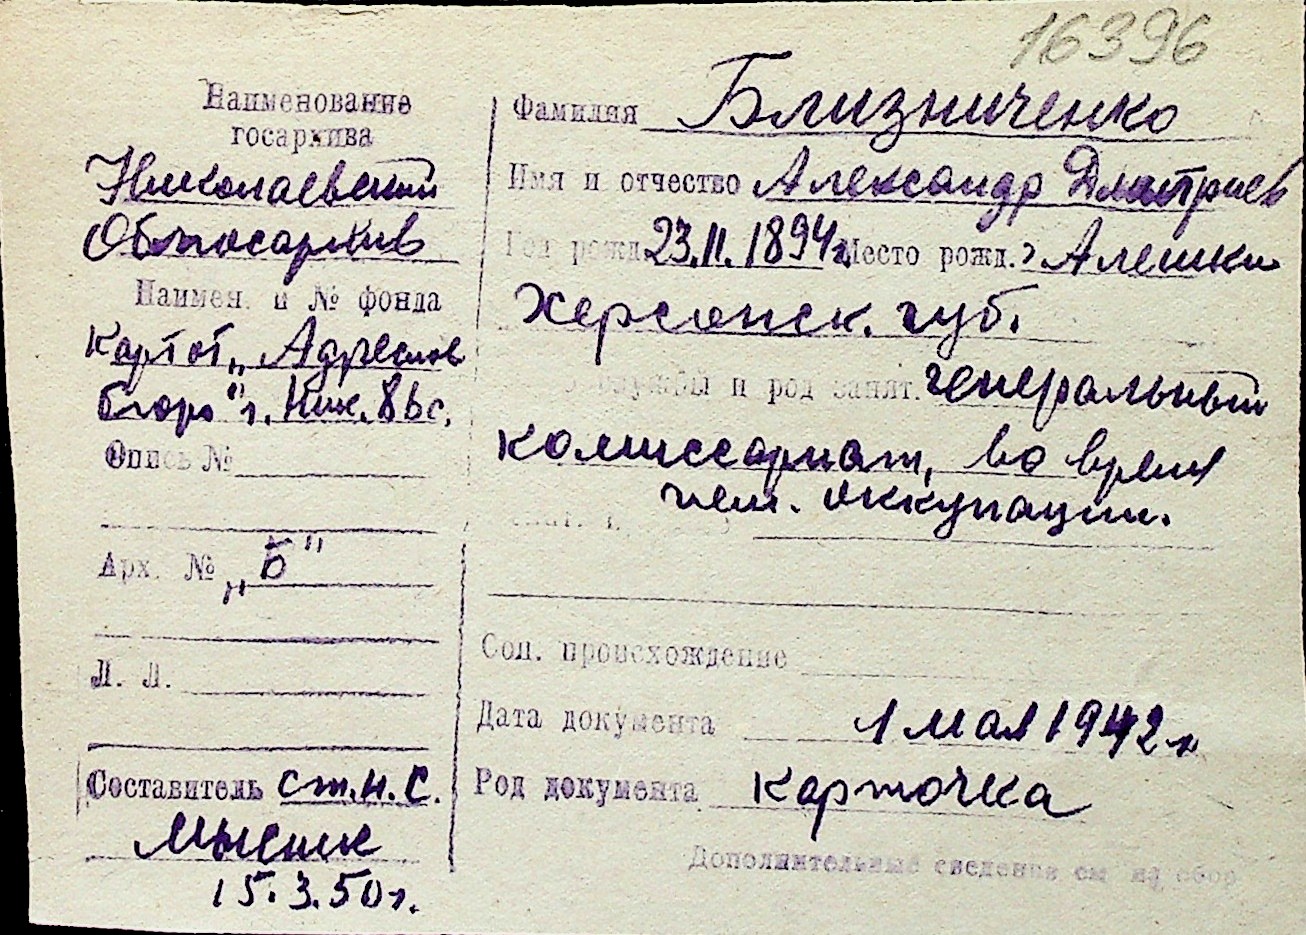 16396
Наименование
госархива
Николаевский
Облгосархив
Наимен. и № фонда
Картот. „Адресное
бюро" г. Ник.
Опись №
Арх. № „Б"
Л. Л.
Составитель ст.н.с.
15.3.50г.
Фамилия Близниченко
Имя и отчество Александр Дмитриев
Год рожд. 23.11.1894г. Место рожд. г Алешки
Херсонск. губ.
службы и род занят. генеральный
комиссариат, во время
нем. оккупации.
Соц. происхождение
Дата документа 1 мая 1942 г
Род документа карточка
Дополнительные сведения см на обор